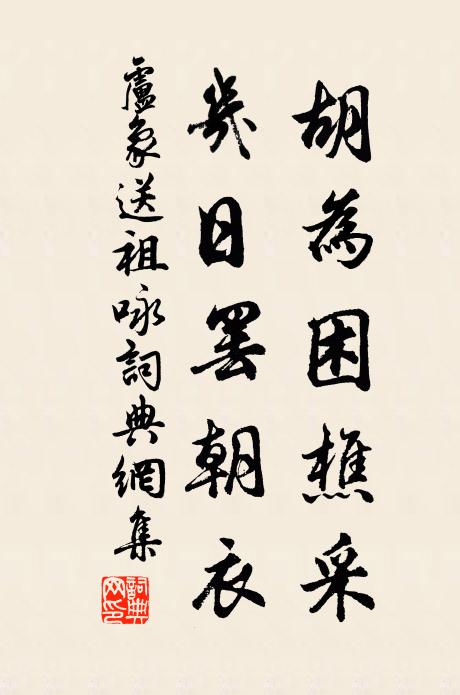 胡為困樵采
幾日罷朝衣
盧象送祖咏詞典網集
詞典網印